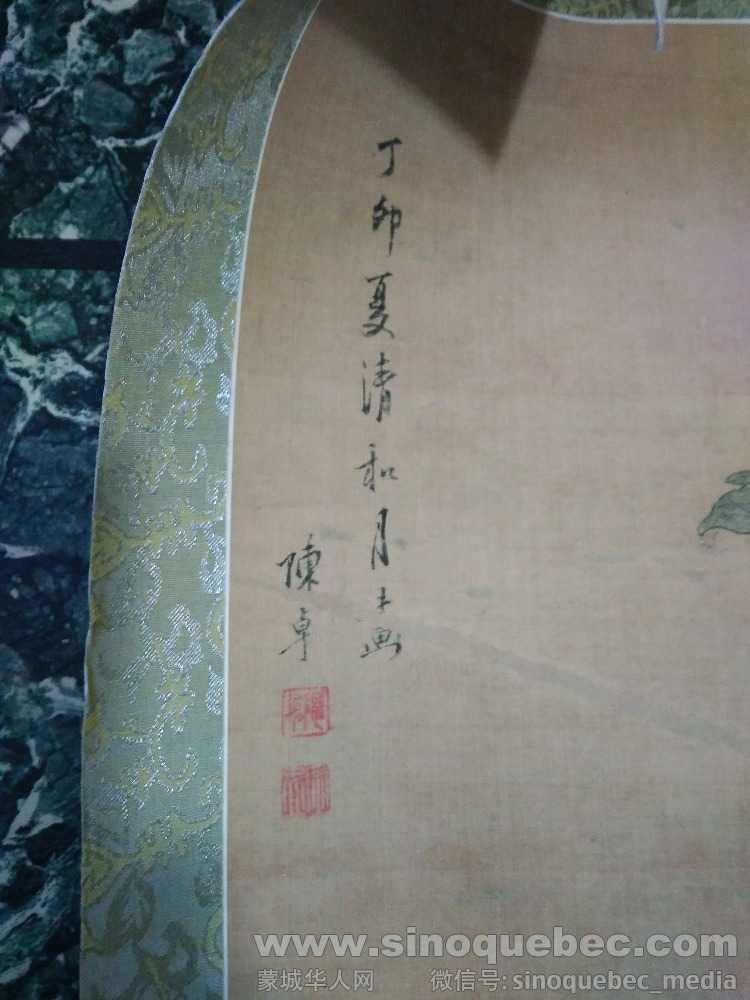 丁卯夏清和月士画
陳卓
www.sinoquebec.com
蒙城华人网 微信号: sinoquebec_media